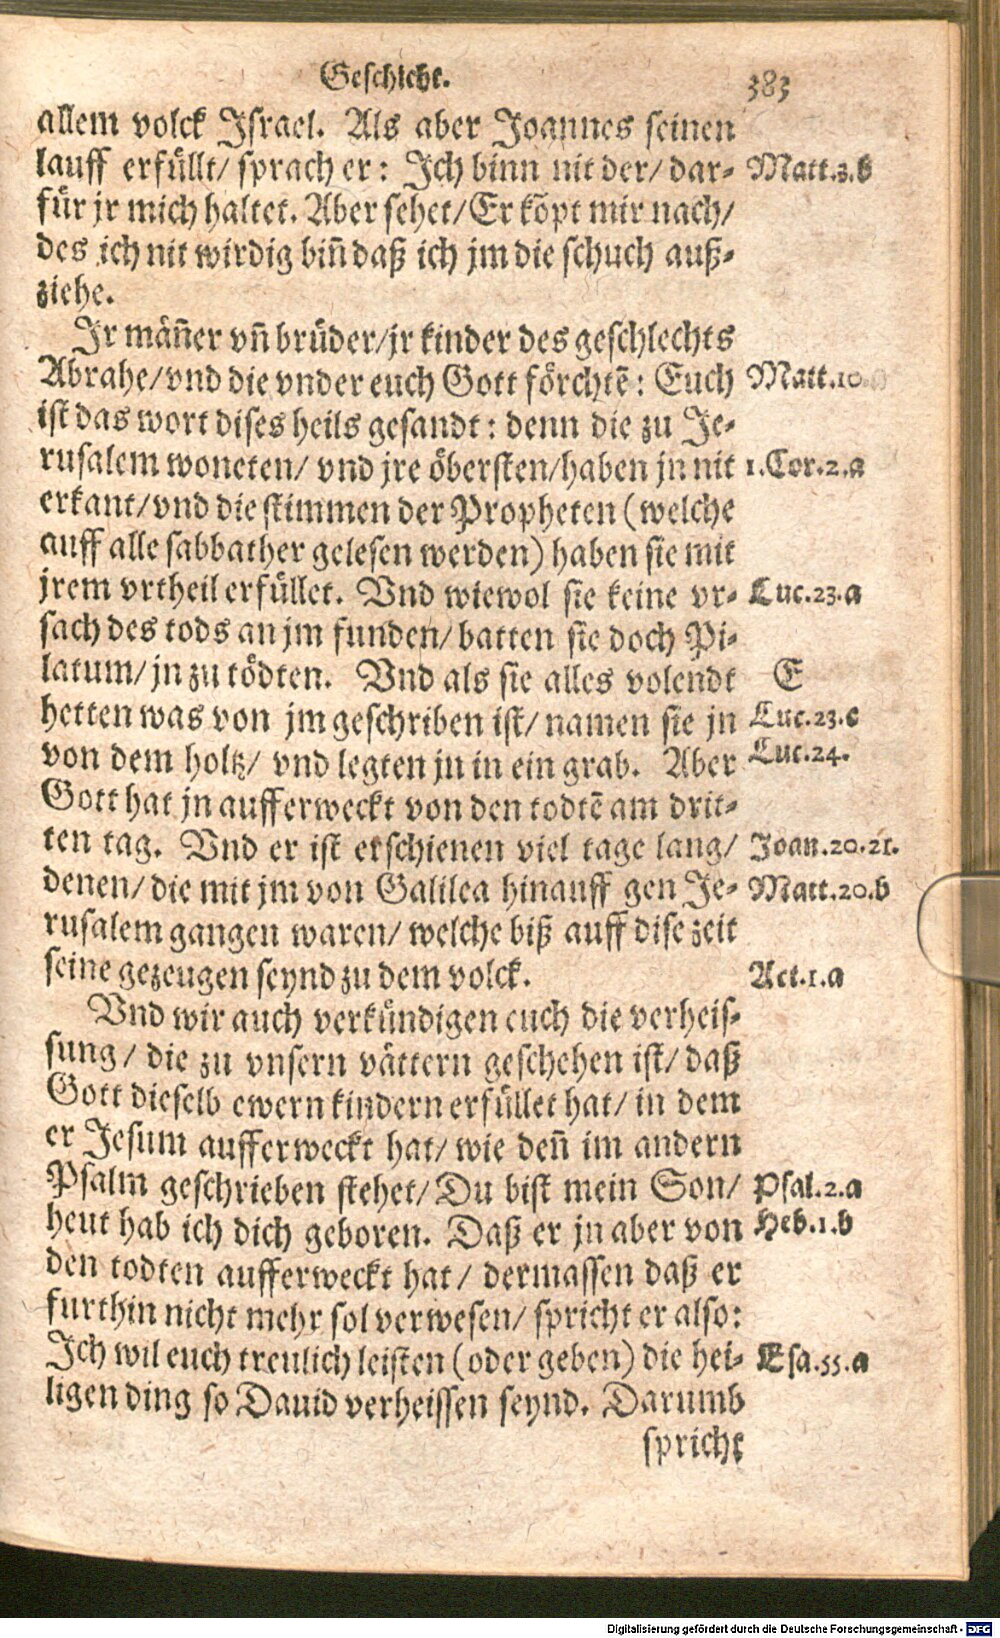 Geschicht. 383
allem volck Israel. Als aber Joannes seinen
lauff erfüllt/ sprach er: Ich binn nit der/ dar- Matt.3.b
für jr mich haltet. Aber sehet/ Er kõpt mir nach/
des ich nit wirdig biñ daß ich jm die schuch auß-
ziehe.
Ir mäñer vñ brüder/ jr kinder des geschlechts
Abrahe/ vnd die vnder euch Gott förchtẽ: Euch Matt.10.
ist das wort dises heils gesandt: denn die zu Je-
rusalem woneten/ vnd jre öbersten/ haben jn nit 1.Cor.2.a
erkant/ vnd die stimmen der Propheten (welche
auff alle sabbather gelesen werden) haben sie mit
jrem vrtheil erfüllet. Vnd wiewol sie keine vr- Luc.23.a
sach des tods an jm funden/ batten sie doch Pi-
latum/ jn zu tödten. Vnd als sie alles volendt E
hetten was von jm geschriben ist/ namen sie jn Luc.23.c
von dem holtz/ vnd legten jn in ein grab. Aber Luc.24.
Gott hat jn aufferweckt von den todtẽ am drit-
ten tag. Vnd er ist erschienen viel tage lang/ Joan.20.21.
denen/ die mit jm von Galilea hinauff gen Je- Matt.20.b
rusalem gangen waren/ welche biß auff dise zeit
seine gezeugen seynd zu dem volck. Act.1.a
Vnd wir auch verkündigen euch die verheis-
sung/ die zu vnsern vättern geschehen ist/ daß
Gott dieselb ewern kindern erfüllet hat/ in dem
er Jesum aufferweckt hat/ wie deñ im andern
Psalm geschrieben stehet/ Du bist mein Son/ Psal.2.a
heut hab ich dich geboren. Daß er jn aber von Heb.1.b
den todten aufferweckt hat/ dermassen daß er
furthin nicht mehr sol verwesen/ spricht er also:
Ich wil euch treulich leisten (oder geben) die hei- Esa.55.a
ligen ding so Dauid verheissen seynd. Darumb
spricht
Digitalisierung gefördert durch die Deutsche Forschungsgemeinschaft - DFG